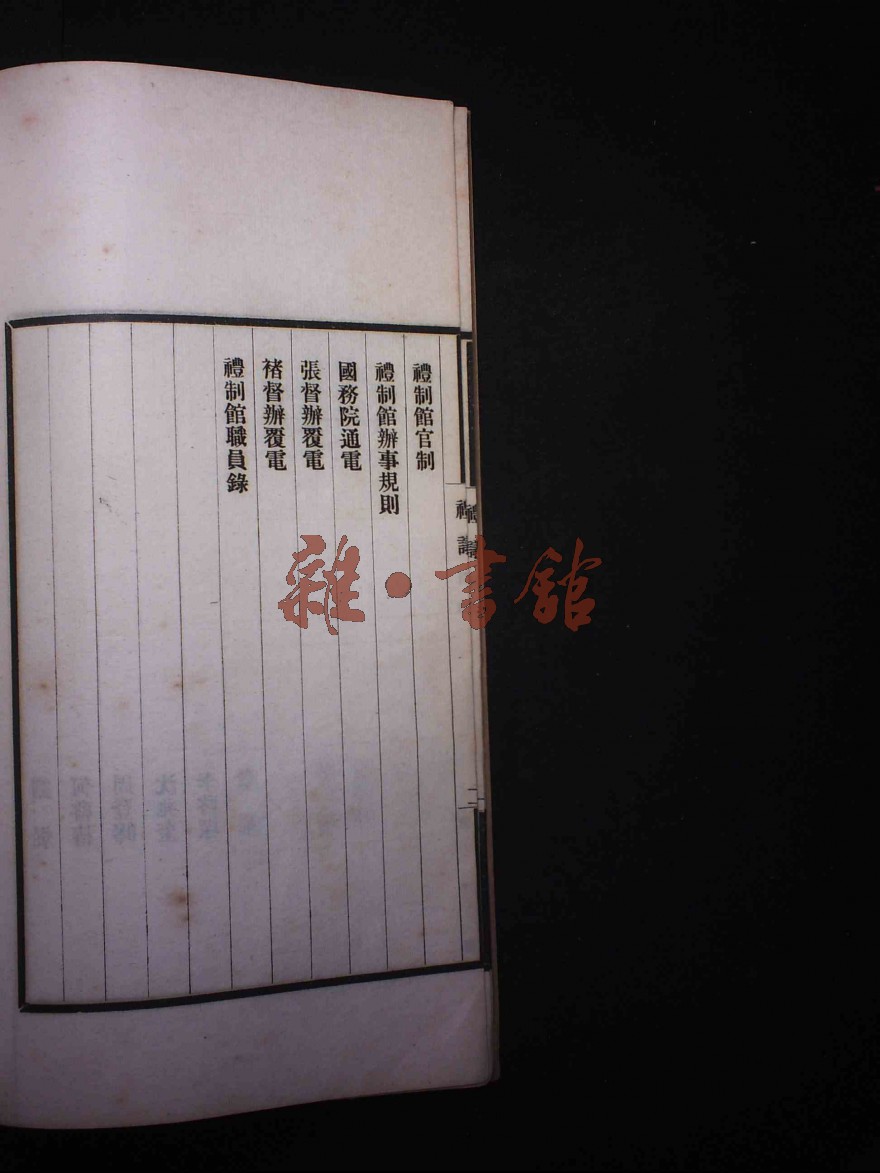 禮制館官制
禮制館辦事規則
國務院通電
張督辦覆電
褚督辦覆電
禮制館職員錄
雜·書館